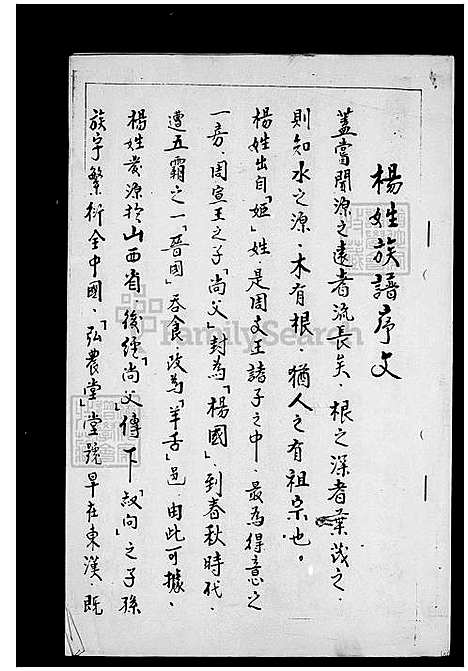 楊姓族譜序文
蓋嘗聞源之遠者流長矣、根之深者葉茂之、
則知水之源、木有根、猶人之有祖宗也。
楊姓出自「姬」姓、是周文王諸子之中、最為得意之
一房、周宣王之子「尚父」封為「楊國」、到春秋時代、
遭五霸之一「晉國」吞食、改為「羊舌」邑、由此可據、
楊姓發源於山西省、後經「尚父」傳下「叔向」之子孫
族宇繁衍全中國、「弘農堂」堂號早在東漢、既
FamilySearch